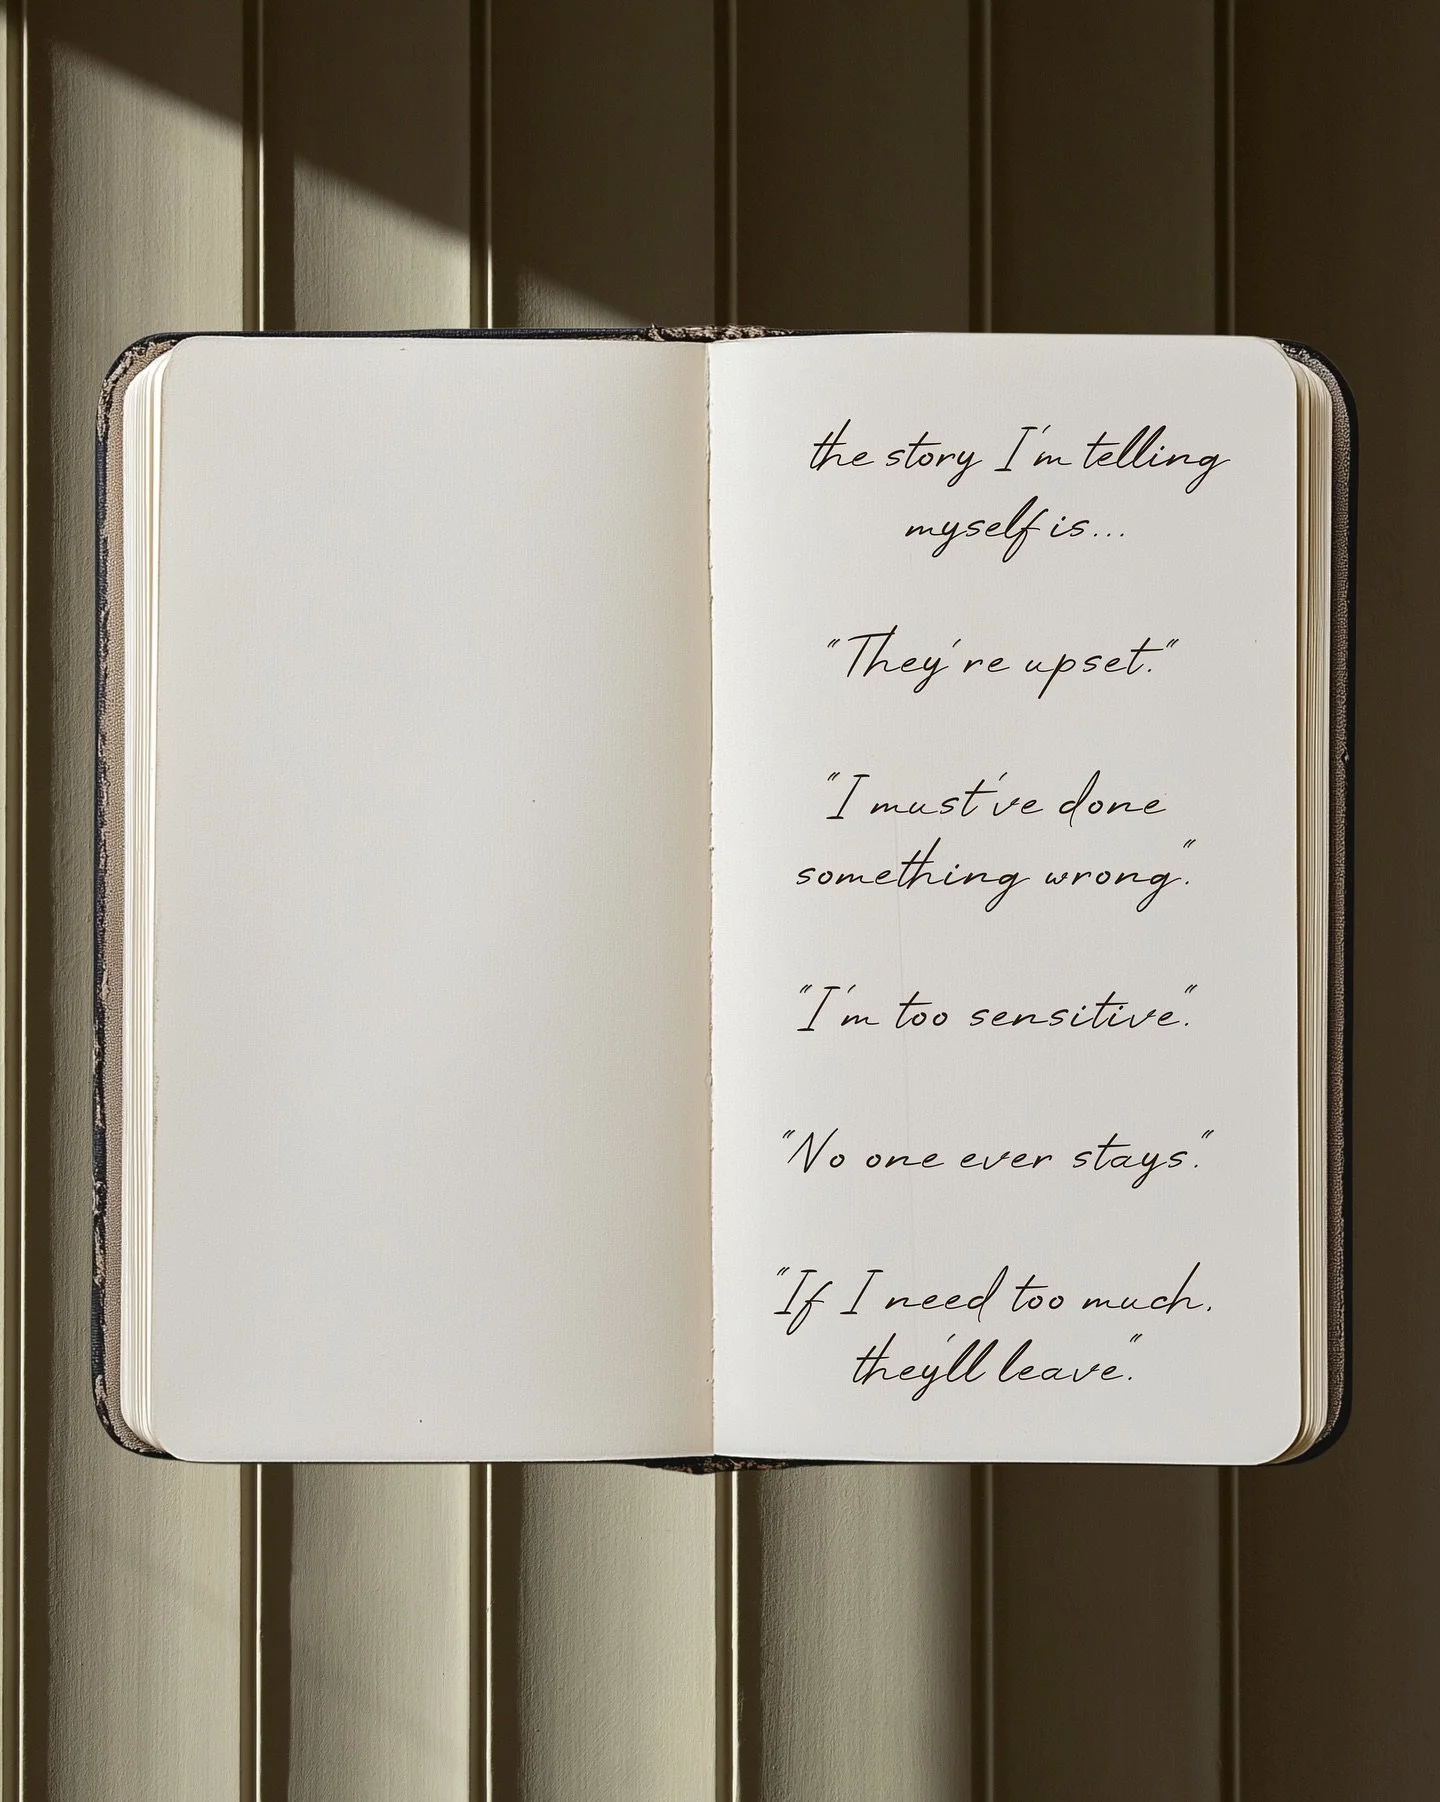 the story I'm telling
myself is...
"They're upset."
"I must've done
something wrong."
"I'm too sensitive."
"No one ever stays."
"If I need too much,
they'll leave."